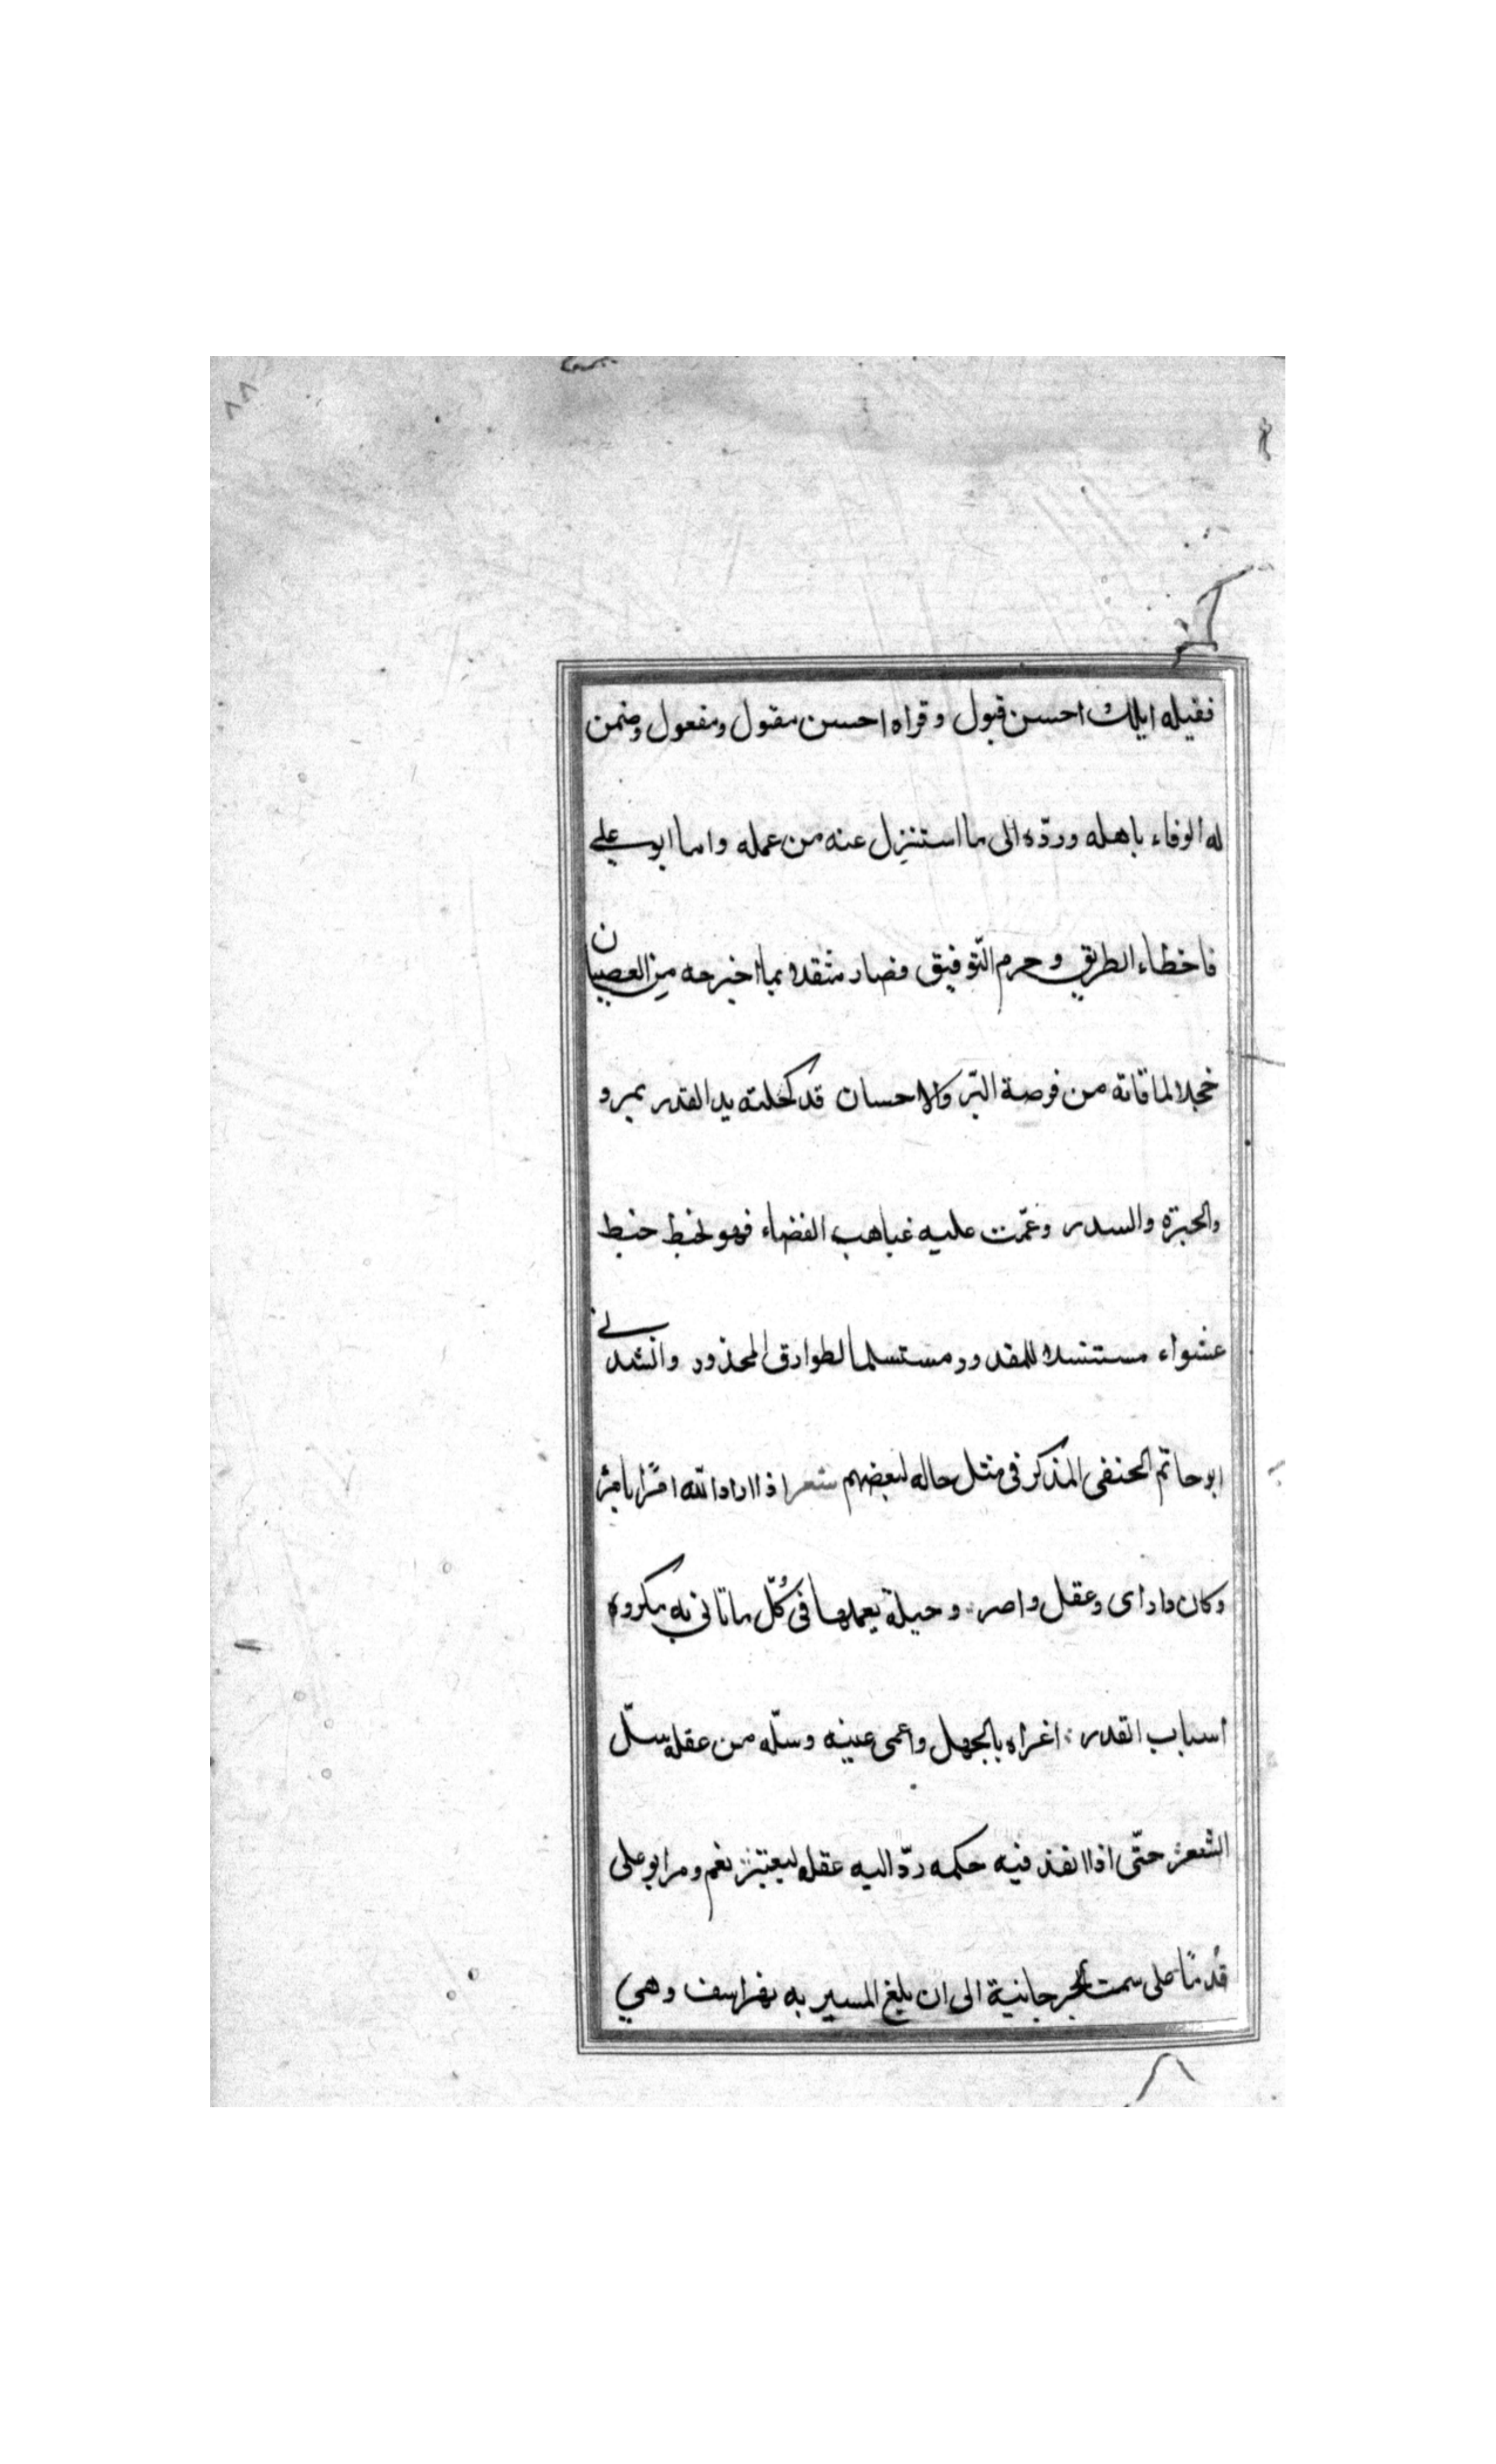 ٨٨
فقبله ايلك احسن قبول وقراه احسن مقول ومفعول وضمن
له الوفاء باهله وردّه الى ما استنزل عنه من عمله واما ابو علي
فاخطاء الطريق وحرم التّوفيق فصار مثقلا بما اخبرحه من العصيان
خجلا لما فاته من فرصة البّر والاحسان قد كحلته يد القدر بمرو
والحبرّة والسدر وغمّت عليه غياهب الفضاء فهو يخبط خبط
عشواء مستنسلا للمقدور مستسلما لطوارق المحذور وانشدني
ابو حاتم الحنفى المذكر فى مثل حاله لبعضهم شعر اذا اراد الله امرًا بامرئ
وكان ذا راى وعقل وبصر وحيلة يعملها فى كُلّ ما تاتى به مكروه
اسباب القدر اغراه بالجهل واعمى عينه وسلّه من عقله سلّ
الشعر حتّى اذا انفذ فيه حكمه ردّ اليه عقله ليعتبر نعم ومر ابو على
قُدمًا على سمت الجرجانية الى ان بلغ المسير به هزراسف وهي